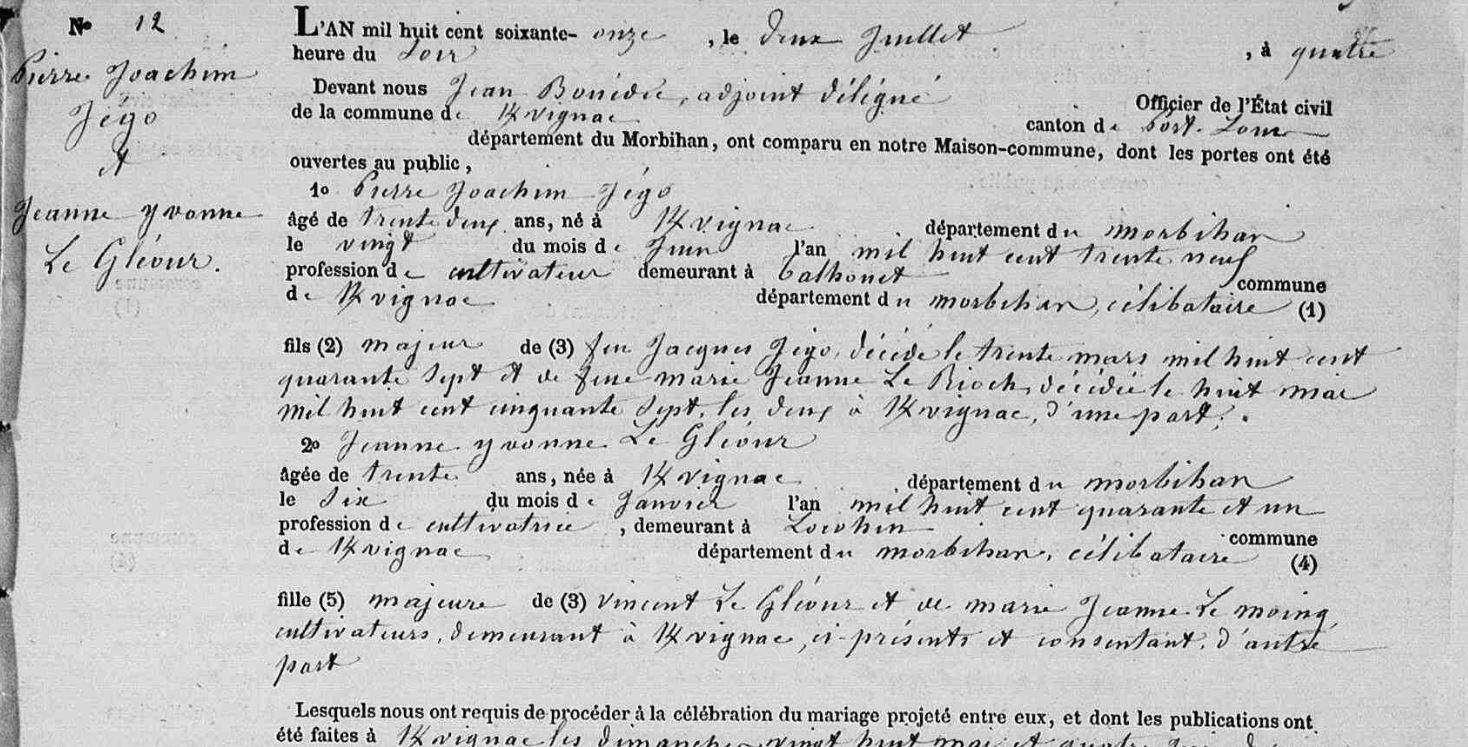 No 12
Pierre Joachim
Jégo
et
Jeanne Yvonne
Le Gléour.
L'AN mil huit cent soixante-onze, le deux Juillet, à quatre
heure du soir
Devant nous Jean , adjoint délégué Officier de l'État civil
de la commune de Kvignac canton de Port-Louis
département du Morbihan, ont comparu en notre Maison-commune, dont les portes ont été
ouvertes au public,
1o Pierre Joachim Jégo
âgé de trente deux ans, né à Kvignac département du morbihan
le vingt du mois de Juin l'an mil huit cent trente neuf
profession de cultivateur demeurant à commune
de Kvignac département du morbihan, célibataire (1)
fils (2) majeur de (3) feu Jacques Jégo, décédé le trente mars mil huit cent
quarante sept et de feue marie Jeanne Le Rioch, décédée le huit mai
mil huit cent cinquante sept, les deux à Kvignac, d'une part.
2o Jeanne yvonne Le Gléour
âgée de trente ans, née à Kvignac département du morbihan
le six du mois de Janvier l'an mil huit cent quarante et un
profession de cultivatrice, demeurant à Locohin commune
de Kvignac département du morbihan, célibataire (4)
fille (5) majeure de (3) vincent Le Gléour et de marie Jeanne Le moing,
cultivateurs, demeurant à Kvignac, ci-présents et consentant, d'autre
part
Lesquels nous ont requis de procéder à la célébration du mariage projeté entre eux, et dont les publications ont
été faites à Kvignac les dimanches vingt huit mai et quatre Juin